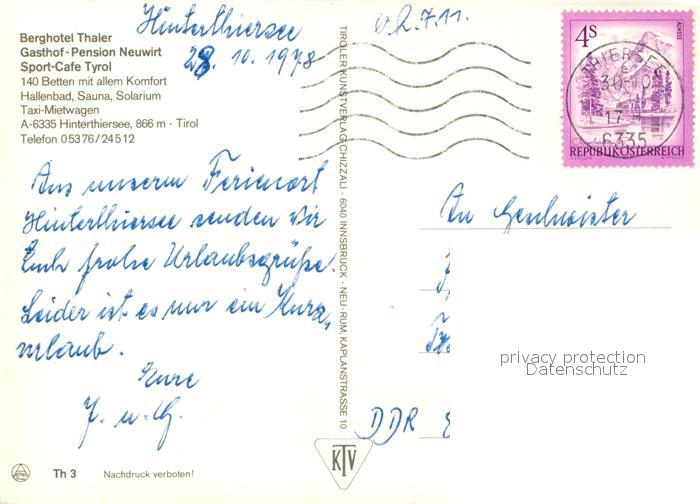 Berghotel Thaler
Gasthof-Pension Neuwirt
Sport-Cafe Tyrol
140 Betten mit allem Komfort
Hallenbad, Sauna, Solarium
Taxi-Mietwagen
A-6335 Hinterthiersee, 866 m - Tirol
Telefon 05376/24512
Hinterthiersee
28. 10. 1978
erh. 7.11.
4S
ALMSEE
THIERSEE
30.10
17
6335
REPUBLIK ÖSTERREICH
Aus unserm Ferienort
Hinterthiersee senden wir
Euch frohe Urlaubsgrüße.
Leider ist es nur ein Kurz-
urlaub.
Eure
J. u. G.
TIROLER KUNSTVERLAG CHIZZALI · 6040 INNSBRUCK - NEU-RUM, KAPLANSTRASSE 10
An Geschwister
DDR
privacy protection
Datenschutz
KTV
Th 3
Nachdruck verboten!